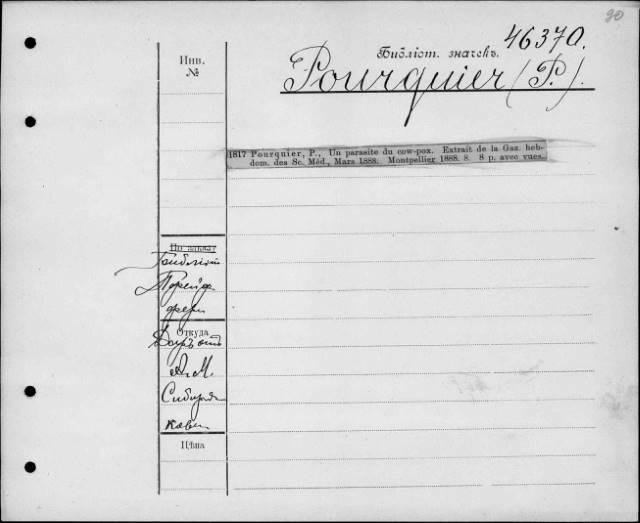 90
Инв.
№
Библіот. значекъ.
46370.
Pourquier (P.).
1817 Pourquier, P., Un parasite du cow-pox. Extrait de la Gaz. heb-
dom. des Sc. Méd., Mars 1888. Montpellier 1888. 8. 8 p. avec vues.
По алфавит
Откуда
Даръ отъ
А. М.
Сибиряко
Цѣна